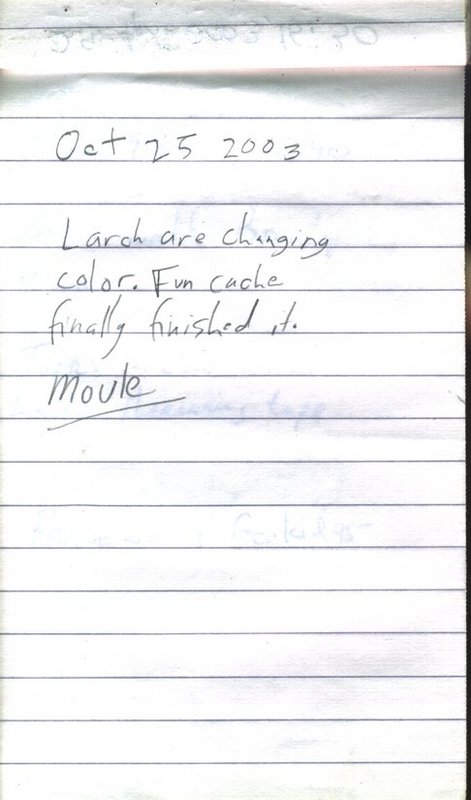 Oct 25 2003
Larch are changing
color. Fun cache
finally finished it.
Moule